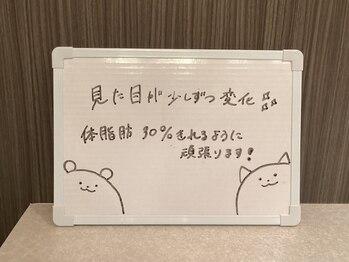 見た目が少しずつ変化
体脂肪 30%きれるように
頑張ります!